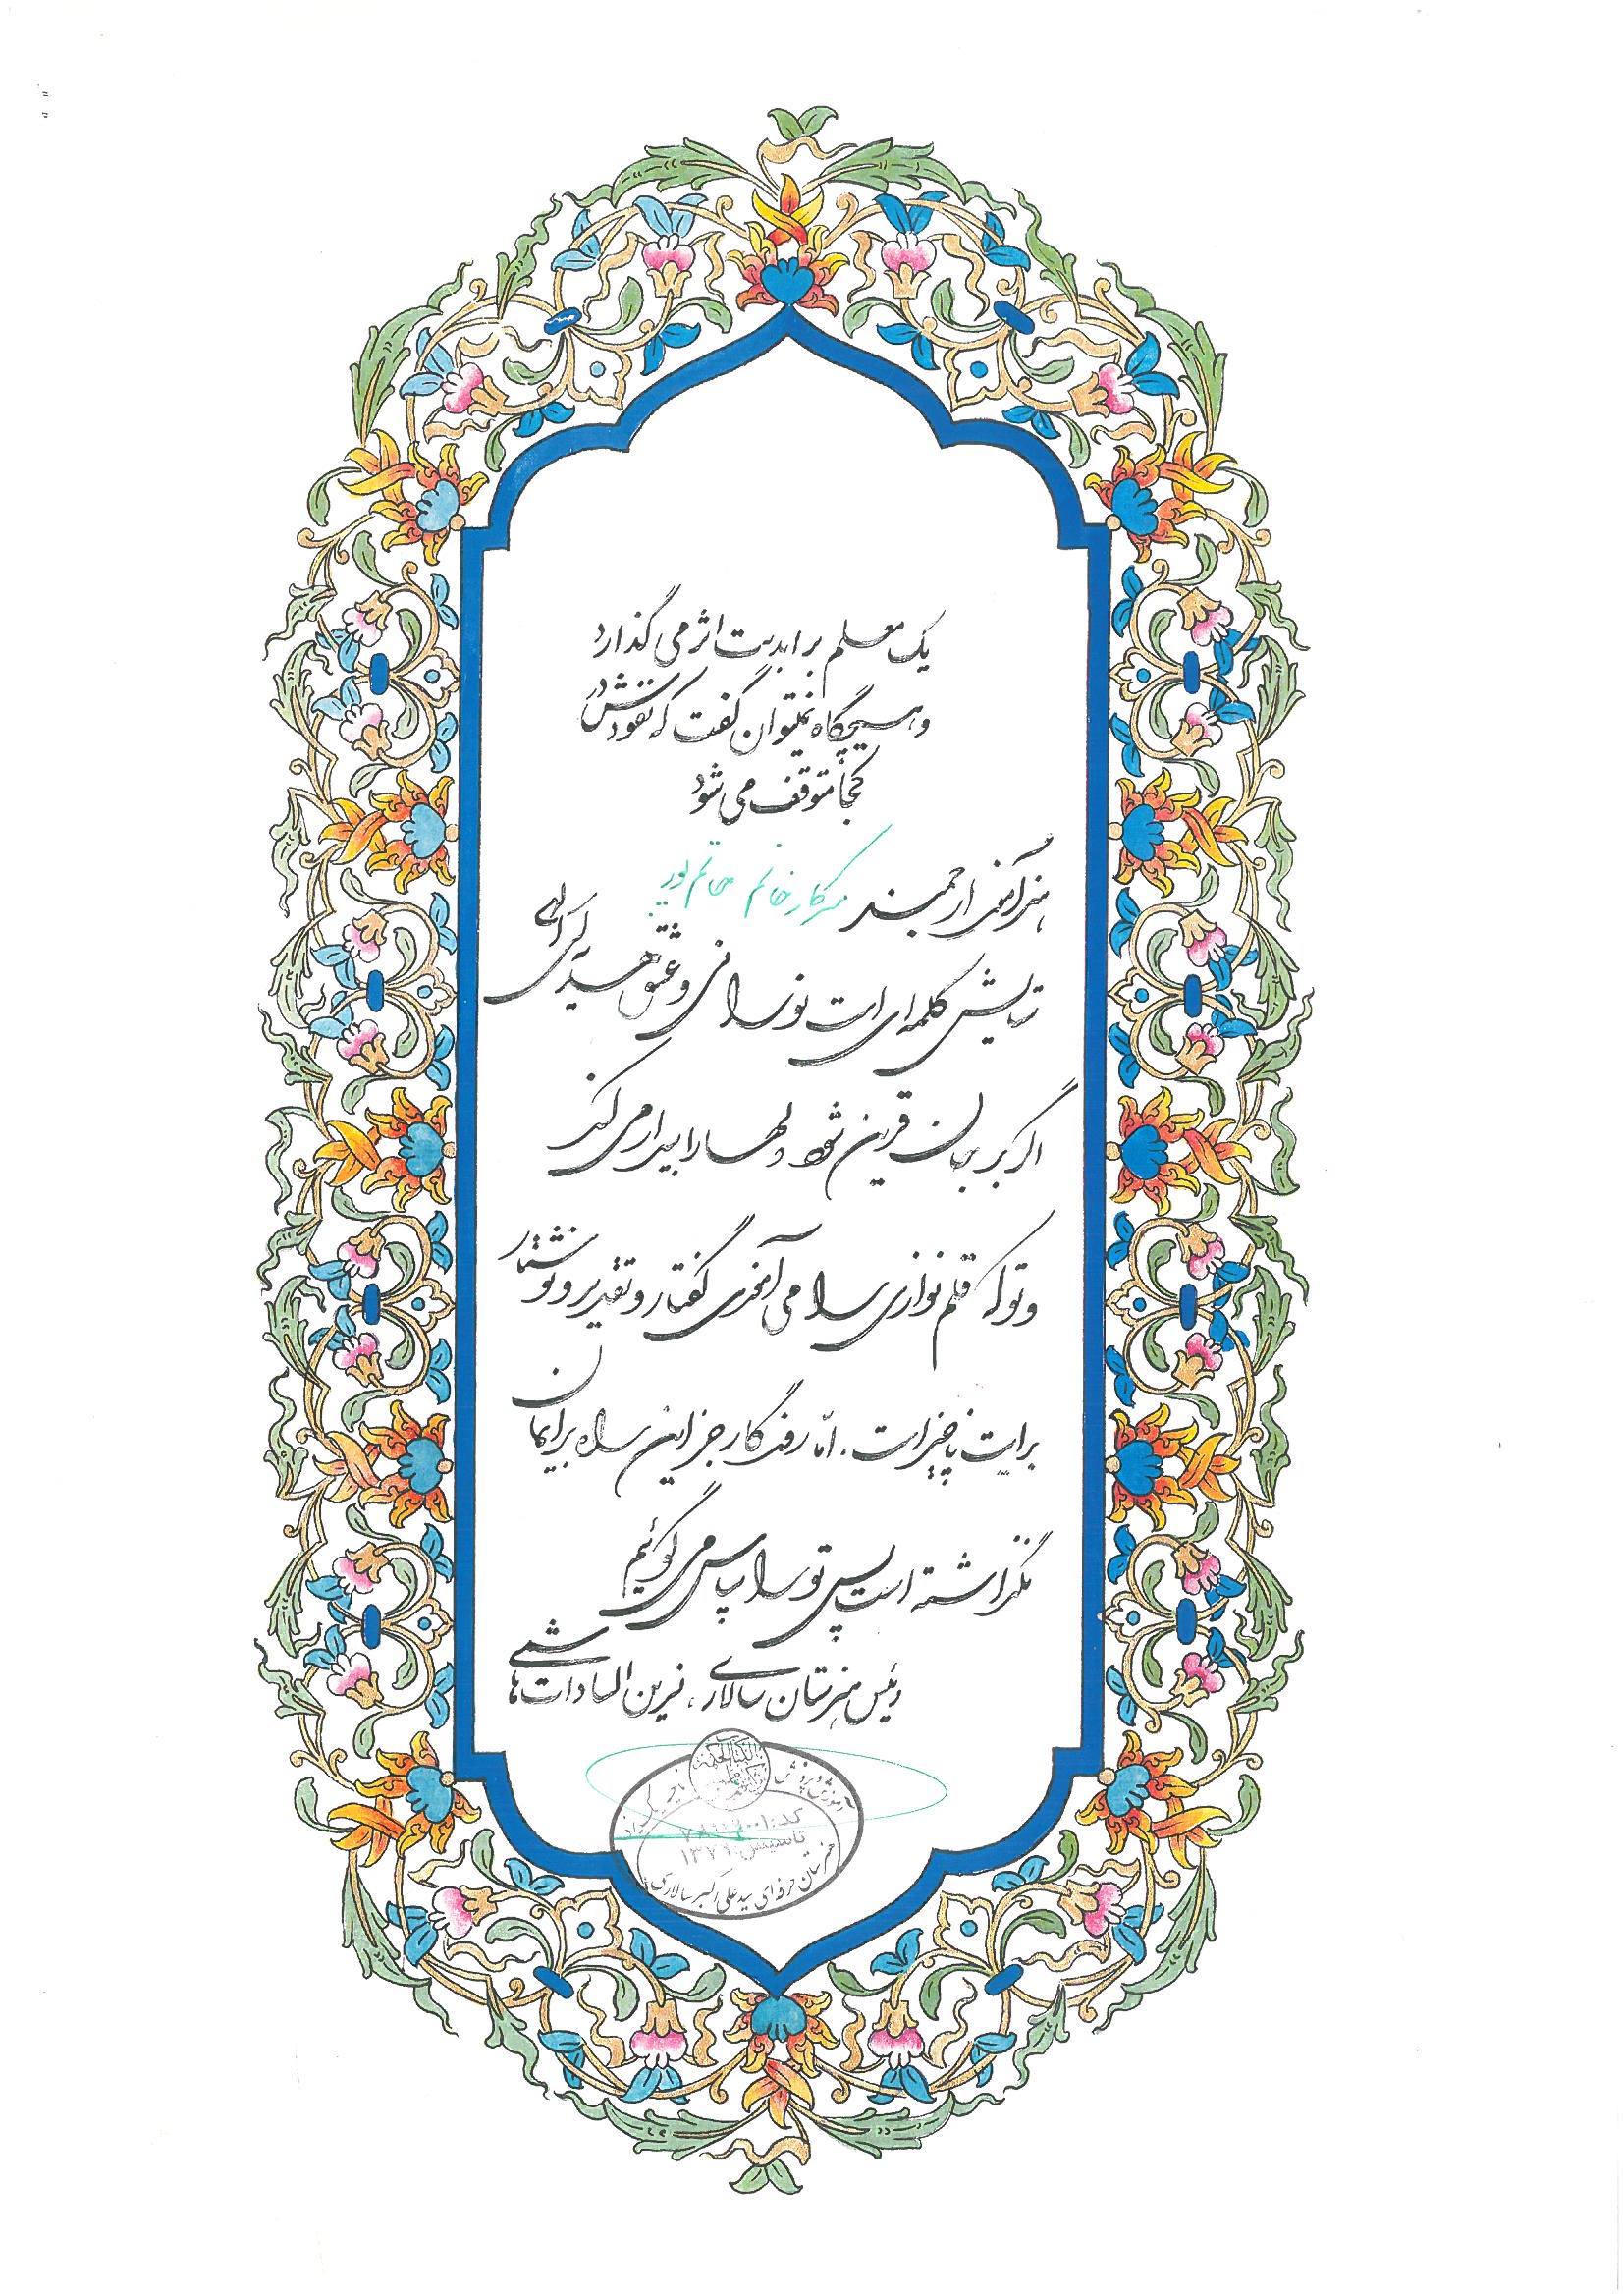 یک معلم بر ابدیت اثر می گذارد
و هیچگاه نمیتوان گفت که نفوذش در
کجا متوقف می شود
هنرآموز ارجمند سرکار خانم حاتم پور
ستایش کلمه ای است نورانی و عشق هدیه ای
اگر بر جان قرین شود دلها را بیدار می کند
و تو که قلم نوازی را می آموزی گفتار و تقدیر و نوشتار
برایت ناچیز است . امّا رفتگار جز این راه برایمان
نگذاشته است پس تو را سپاس می گوئیم
رئیس هنرستان سالاری ، نسرین السادات هاشمی
آموزش و پرورش
کد:
تاسیس: ۱۳۷۹
هنرستان حرفه ای سید علی اکبر سالاری